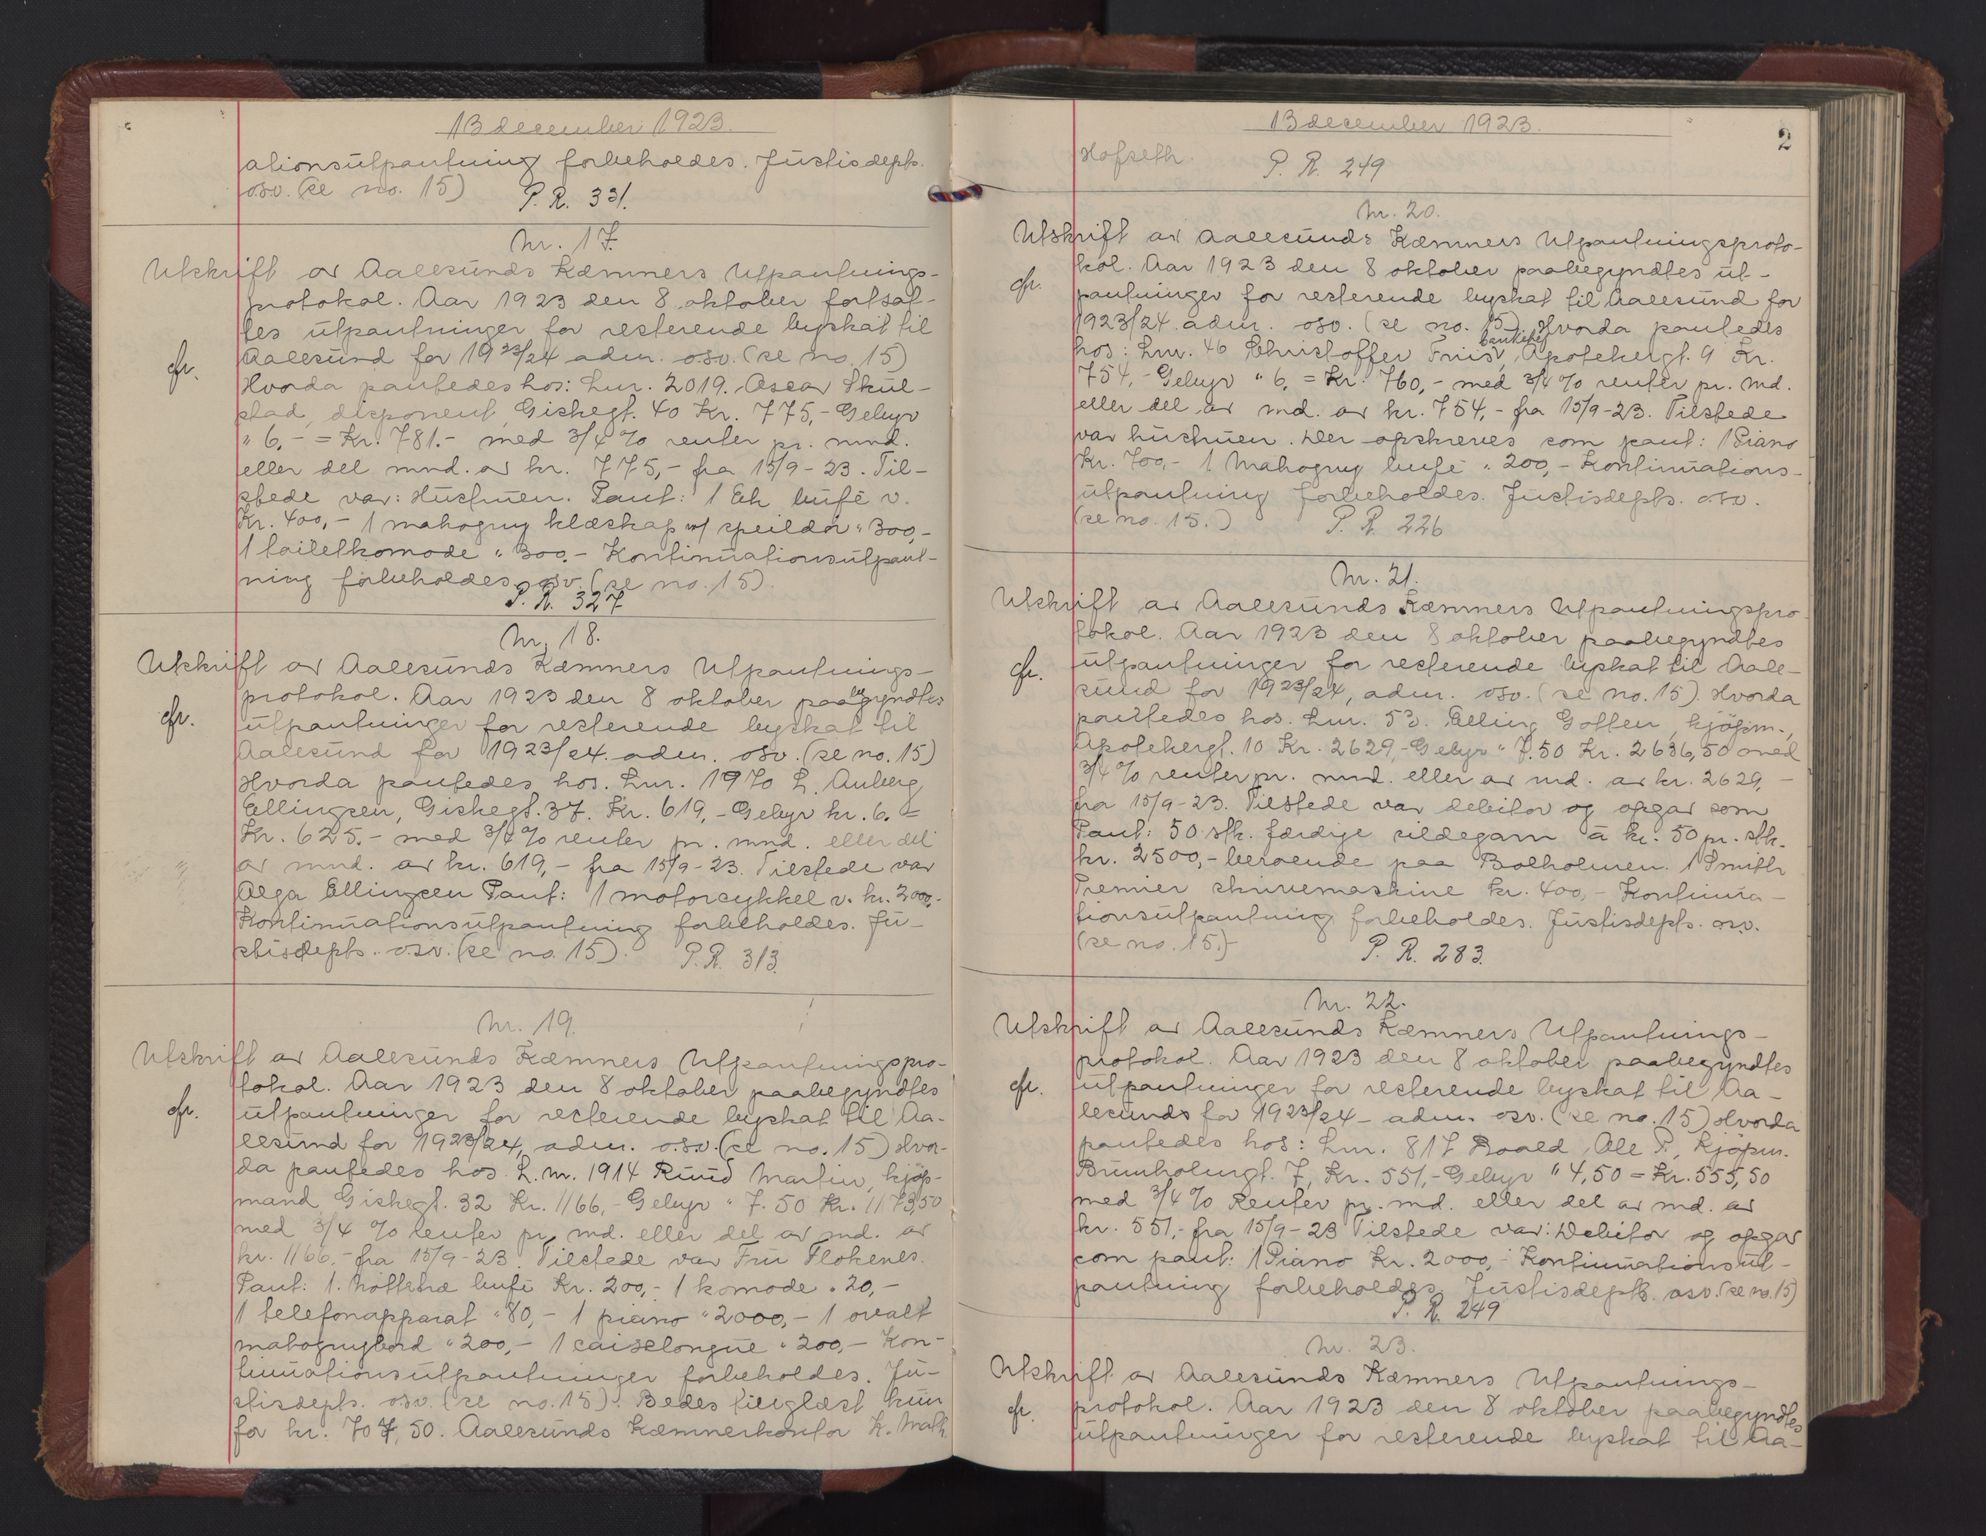 13 december 1923.
ationsutpantning forbeholdes. Justisdepts.
osv. (se no. 15) P. R. 331.
Nr. 17.
Utskrift av Aalesunds Kæmners Utpantnings-
protokol. Aar 1923 den 8 oktober fortsat-
tes utpantninger for resterende byskat til
cfr. Aalesund for 1923/24 adm. osv. (se no. 15)
Hvorda pantedes hos: Lnr. 2019. Oscar Skul-
stad, disponent, Giskegt. 40 Kr. 775,- Gebyr
" 6,- = Kr. 781.- med 3/4 % renter pr. mnd.
eller del mnd. av kr. 775,- fra 15/9-23. Til-
stede var: Hustruen. Pant: 1 Ek bufé v.
Kr. 400,- 1 mahogny klæskap m/ speildør " 300,-
1 toiletkomode " 300.- Kontinuationsutpant-
ning forbeholdes osv. (se no. 15).
P. R. 327
Nr. 18.
Utskrift av Aalesunds Kæmners Utpantnings-
protokol. Aar 1923 den 8 oktober paabegyndtes
cfr. utpantninger for resterende byskat til
Aalesund for 1923/24 adm. osv. (se no. 15)
Hvorda pantedes hos. Lnr. 1970 L. Auberg
Ellingsen, Giskegt. 37. Kr. 619,- Gebyr kr. 6. =
Kr. 625.- med 3/4 % renter pr. mnd. eller del
av mnd. av kr. 619,- fra 15/9-23. Tilstede var
Olga Ellingsen Pant: 1 motorcykkel v. kr. 2000,-
Kontinuationsutpantning forbeholdes. Ju-
stisdepts. osv. (se no. 15). P. R. 313.
Nr. 19.
Utskrift av Aalesunds Kæmners Utpantningspro-
tokol. Aar 1923 den 8 oktober paabegyndtes
cfr. utpantninger for resterende byskat til Aa-
lesund for 1923/24, adm. o.s.v. (se no. 15) Hvor-
da pantedes hos. L.nr. 1914 Ruud Martin, kjøp-
mand Giskegt. 32 Kr. 1166,- Gebyr " 7.50 Kr. 1173,50
med 3/4 % renter pr. md. eller del av md. av
kr. 1166,- fra 15/9-23. Tilstede var Fru Flokenes.
Pant: 1. Nøttetræ bufé Kr. 200,- 1 komode " 20,-
1 telefonapparat " 80,- 1 piano " 2000,- 1 ovalt
mahognybord " 200,- 1 caiselongue " 200,- Kon-
tinuationsutpantninger forbeholdes. Ju-
stisdepts. osv. (se no. 15). Bedes tinglæst kun
for kr. 707,50. Aalesunds Kæmnerkontor K. Math
13 december 1923.
2
Hofseth. P. R. 249
Nr. 20.
Utskrift av Aalesunds Kæmners Utpantningsproto-
kol. Aar 1923 den 8 oktober paabegyndtes ut-
cfr. pantninger for resterende byskat til Aalesund for
1923/24 adm. osv. (se no. 15). Hvorda pantedes
hos: Lnr. 46 Christoffer Friis, Apotekergt. 9 Kr.
754,- Gebyr " 6, = Kr. 760,- med 3/4 % renter pr. md.
eller del av md. av kr. 754,- fra 15/9-23. Tilstede
var hustruen. Der opskreves som pant: 1 Piano
Kr. 700,- 1 Mahogny bufé " 200,- Kontinuations-
utpantning forbeholdes. Justisdepts. osv.
(se no. 15.) P. R. 226
Nr. 21.
Utskrift av Aalesunds Kæmners Utpantningspro
tokol. Aar 1923 den 8 oktober paabegyndtes
cfr. utpantninger for resterende byskat til Aale-
sund for 1923/24, adm. osv. (se no. 15). Hvorda
pantedes hos. Lnr. 53. Elling Gotteu, kjøpm.,
Apotekergt. 10 Kr. 2629,- Gebyr " 7.50 Kr. 2636,50 med
3/4 % renter pr. mnd. eller av md. av kr. 2629,-
fra 15/9-23. Tilstede var debitor og opgav som
Pant: 50 stk. færdige sildegarn à kr. 50 pr. stk.
kr. 2500,- beroende paa Bolholmen. 1 Smith
Premier skrivemaskine kr. 400,- Kontinua-
tionsutpantning forbeholdes. Justisdepts. osv.
(se no. 15.) P. R. 283.
Nr. 22.
Utskrift av Aalesunds Kæmners Utpantnings-
protokol. Aar 1923 den 8 oktober paabegyndtes
cfr. utpantninger for resterende byskat til Aa-
lesunds for 1923/24 - adm. osv. (se no. 15) Hvorda
pantedes hos: Lnr. 817 Roald, Ole P., Kjøpm.
Brunholmgt. 7, Kr. 551,- Gebyr " 4,50 = Kr. 555,50
med 3/4 % Renter pr. md. eller del av md. av
kr. 551,- fra 15/9-23 Tilstede var: Debitor og opgav
som pant: 1 Piano Kr. 2000,- Kontinuationsut-
pantning forbeholdes. Justisdepts. osv. (se no. 15)
P. R. 249
Nr. 23.
Utskrift av Aalesunds Kæmners Utpantnings-
cfr. protokol. Aar 1923 den 8 oktober paabegyndtes
utpantninger for resterende byskat til Aa-